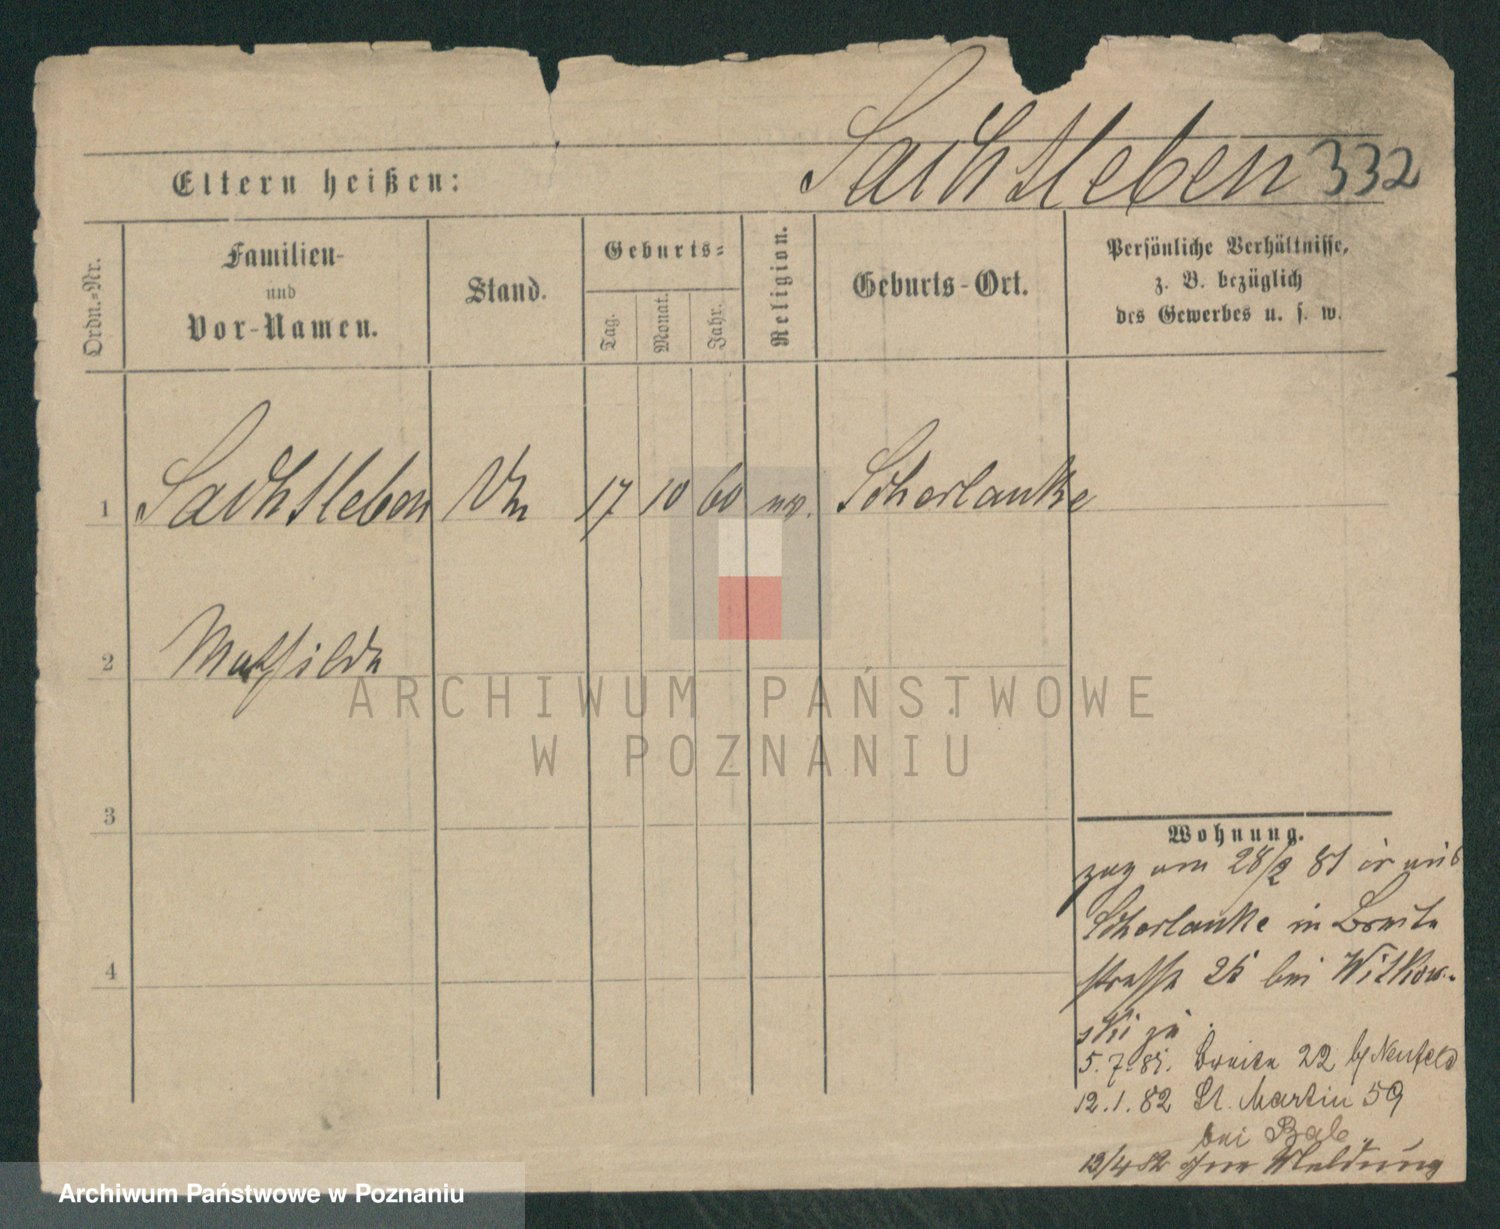 Sachtleben 332
Eltern heißen:
Ordn.-Nr.
Familien-
und
Vor-Namen.
Stand.
Geburts-
Tag.
Monat.
Jahr.
Religion.
Geburts-Ort.
Persönliche Verhältnisse,
z. B. bezüglich
des Gewerbes u. s. w.
1 Sachtleben 17 10 60 ev. Scherlanke
2 Mathilde
3
4
Wohnung.
zog am 28/2 81 aus
Scherlanke in Breite
strasse 25 bei Witkow-
ski zu
5.7.81. Breite 22 b/ Neufeld
12.1.82 St. Martin 59
bei
12/4 82 Meldung
ARCHIWUM PAŃSTWOWE
W POZNANIU
Archiwum Państwowe w Poznaniu